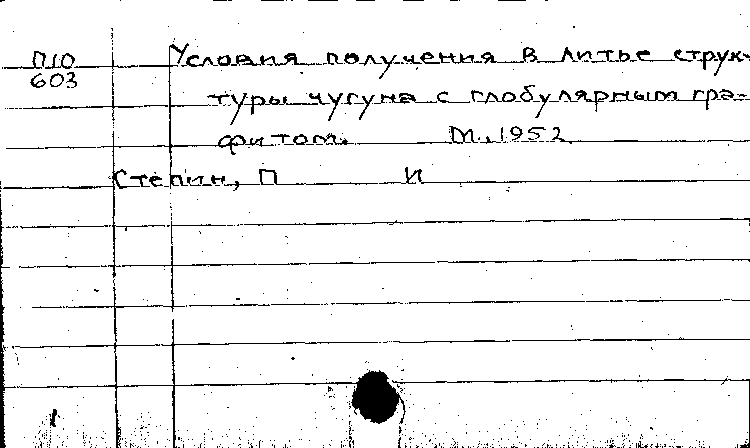 П10 Условия получения в литье струк-
603
туры чугуна с глобулярным гра-
фитом. М., 1952
Степин, П И